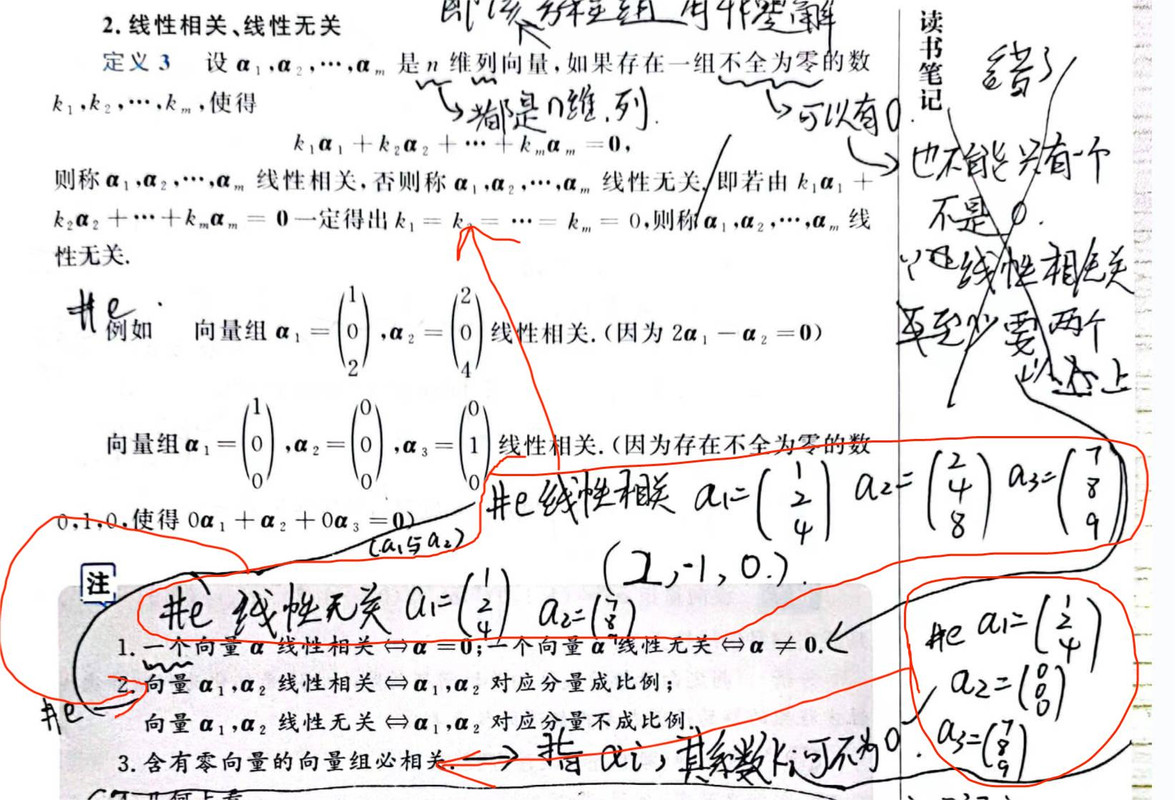 2. 线性相关、线性无关
定义 3 设 α₁,α₂,⋯,αₘ 是 n 维列向量,如果存在一组不全为零的数
k₁,k₂,⋯,kₘ,使得
都是n维列.
可以有0.
k₁α₁ + k₂α₂ + ⋯ + kₘαₘ = 0,
则称 α₁,α₂,⋯,αₘ 线性相关,否则称 α₁,α₂,⋯,αₘ 线性无关,即若由 k₁α₁ +
k₂α₂ + ⋯ + kₘαₘ = 0 一定得出 k₁ = k₂ = ⋯ = kₘ = 0,则称 α₁,α₂,⋯,αₘ 线
性无关.
读书笔记
错了
也不能只有一个
不是0.
线性相关
至少要两个
以上
#e
例如 向量组 α₁ = (1 0 2), α₂ = (2 0 4) 线性相关.(因为 2α₁ − α₂ = 0)
向量组 α₁ = (1 0 0), α₂ = (0 0 0), α₃ = (0 1 0) 线性相关.(因为存在不全为零的数
0,1,0,使得 0α₁ + α₂ + 0α₃ = 0)
#e 线性相关 a₁=(1 2 4) a₂=(2 4 8) a₃=(7 8 9)
(a₁与a₂)
(2,-1,0.).
注
#e 线性无关 a₁=(1 2 4) a₂=(7 8 9)
1. 一个向量 α 线性相关 ⇔ α = 0;一个向量 α 线性无关 ⇔ α ≠ 0.
2. 向量 α₁,α₂ 线性相关 ⇔ α₁,α₂ 对应分量成比例;
#e
向量 α₁,α₂ 线性无关 ⇔ α₁,α₂ 对应分量不成比例.
3. 含有零向量的向量组必相关.
指 αi, 其系数ki可不为0.
#e a₁=(1 2 4)
a₂=(0 0 0)
a₃=(7 8 9)